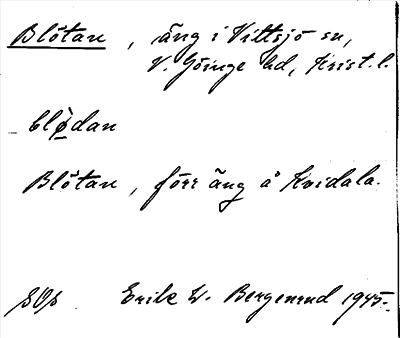 Blötan, äng i Vittsjö sn,
V. Göinge hd, Krist. l.
blødan
Blötan, förr äng å Kvidala.
SOS Erik W. Bergenrud 1945.